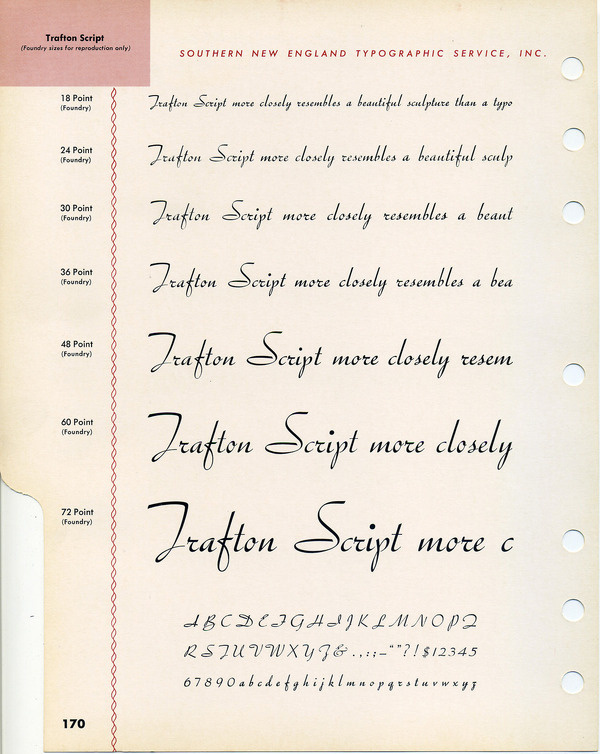 Trafton Script
(Foundry sizes for reproduction only)
SOUTHERN NEW ENGLAND TYPOGRAPHIC SERVICE, INC.
18 Point
(Foundry)
Trafton Script more closely resembles a beautiful sculpture than a typo
24 Point
(Foundry)
Trafton Script more closely resembles a beautiful sculp
30 Point
(Foundry)
Trafton Script more closely resembles a beaut
36 Point
(Foundry)
Trafton Script more closely resembles a bea
48 Point
(Foundry)
Trafton Script more closely resem
60 Point
(Foundry)
Trafton Script more closely
72 Point
(Foundry)
Trafton Script more c
A B C D E F G H I J K L M N O P Q
R S T U V W X Y Z & . , : ; – “ ” ? ! $ 1 2 3 4 5
6 7 8 9 0 a b c d e f g h i j k l m n o p q r s t u v w x y z
170